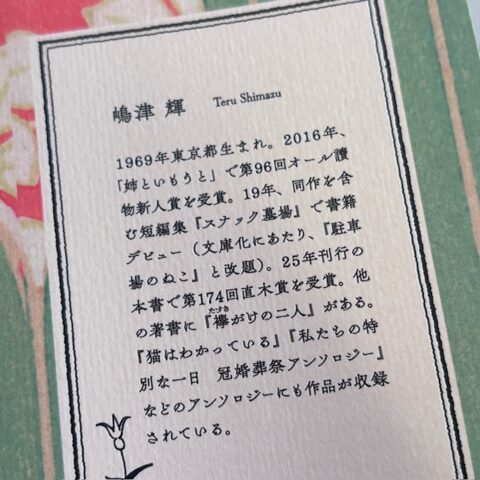 嶋津 輝 Teru Shimazu
1969年東京都生まれ。2016年、
「姉といもうと」で第96回オール讀
物新人賞を受賞。19年、同作を含
む短編集『スナック墓場』で書籍
デビュー（文庫化にあたり、『駐車
場のねこ』と改題）。25年刊行の
本書で第174回直木賞を受賞。他
の著書に『襷がけの二人』がある。
『猫はわかっている』『私たちの特
別な一日　冠婚葬祭アンソロジー』
などのアンソロジーにも作品が収録
されている。